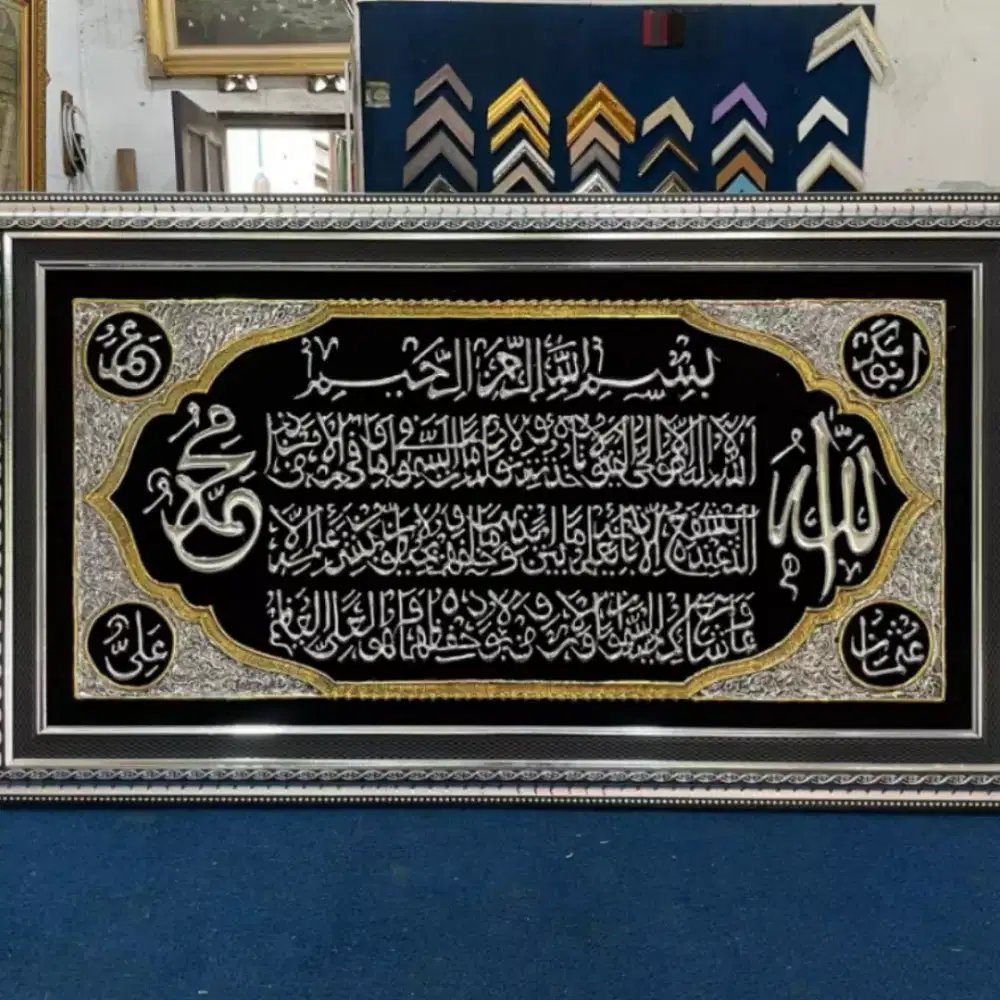 ابوبكر
عمر
بسم الله الرحمن الرحيم
الله
محمد
الله لا اله الا هو الحي القيوم لا تأخذه سنة ولا نوم له ما في السموات وما في الارض من ذا
الذي يشفع عنده الا باذنه يعلم ما بين ايديهم وما خلفهم ولا يحيطون بشيء من علمه الا
بما شاء وسع كرسيه السموات والارض ولا يؤده حفظهما وهو العلي العظيم
عثمان
علي